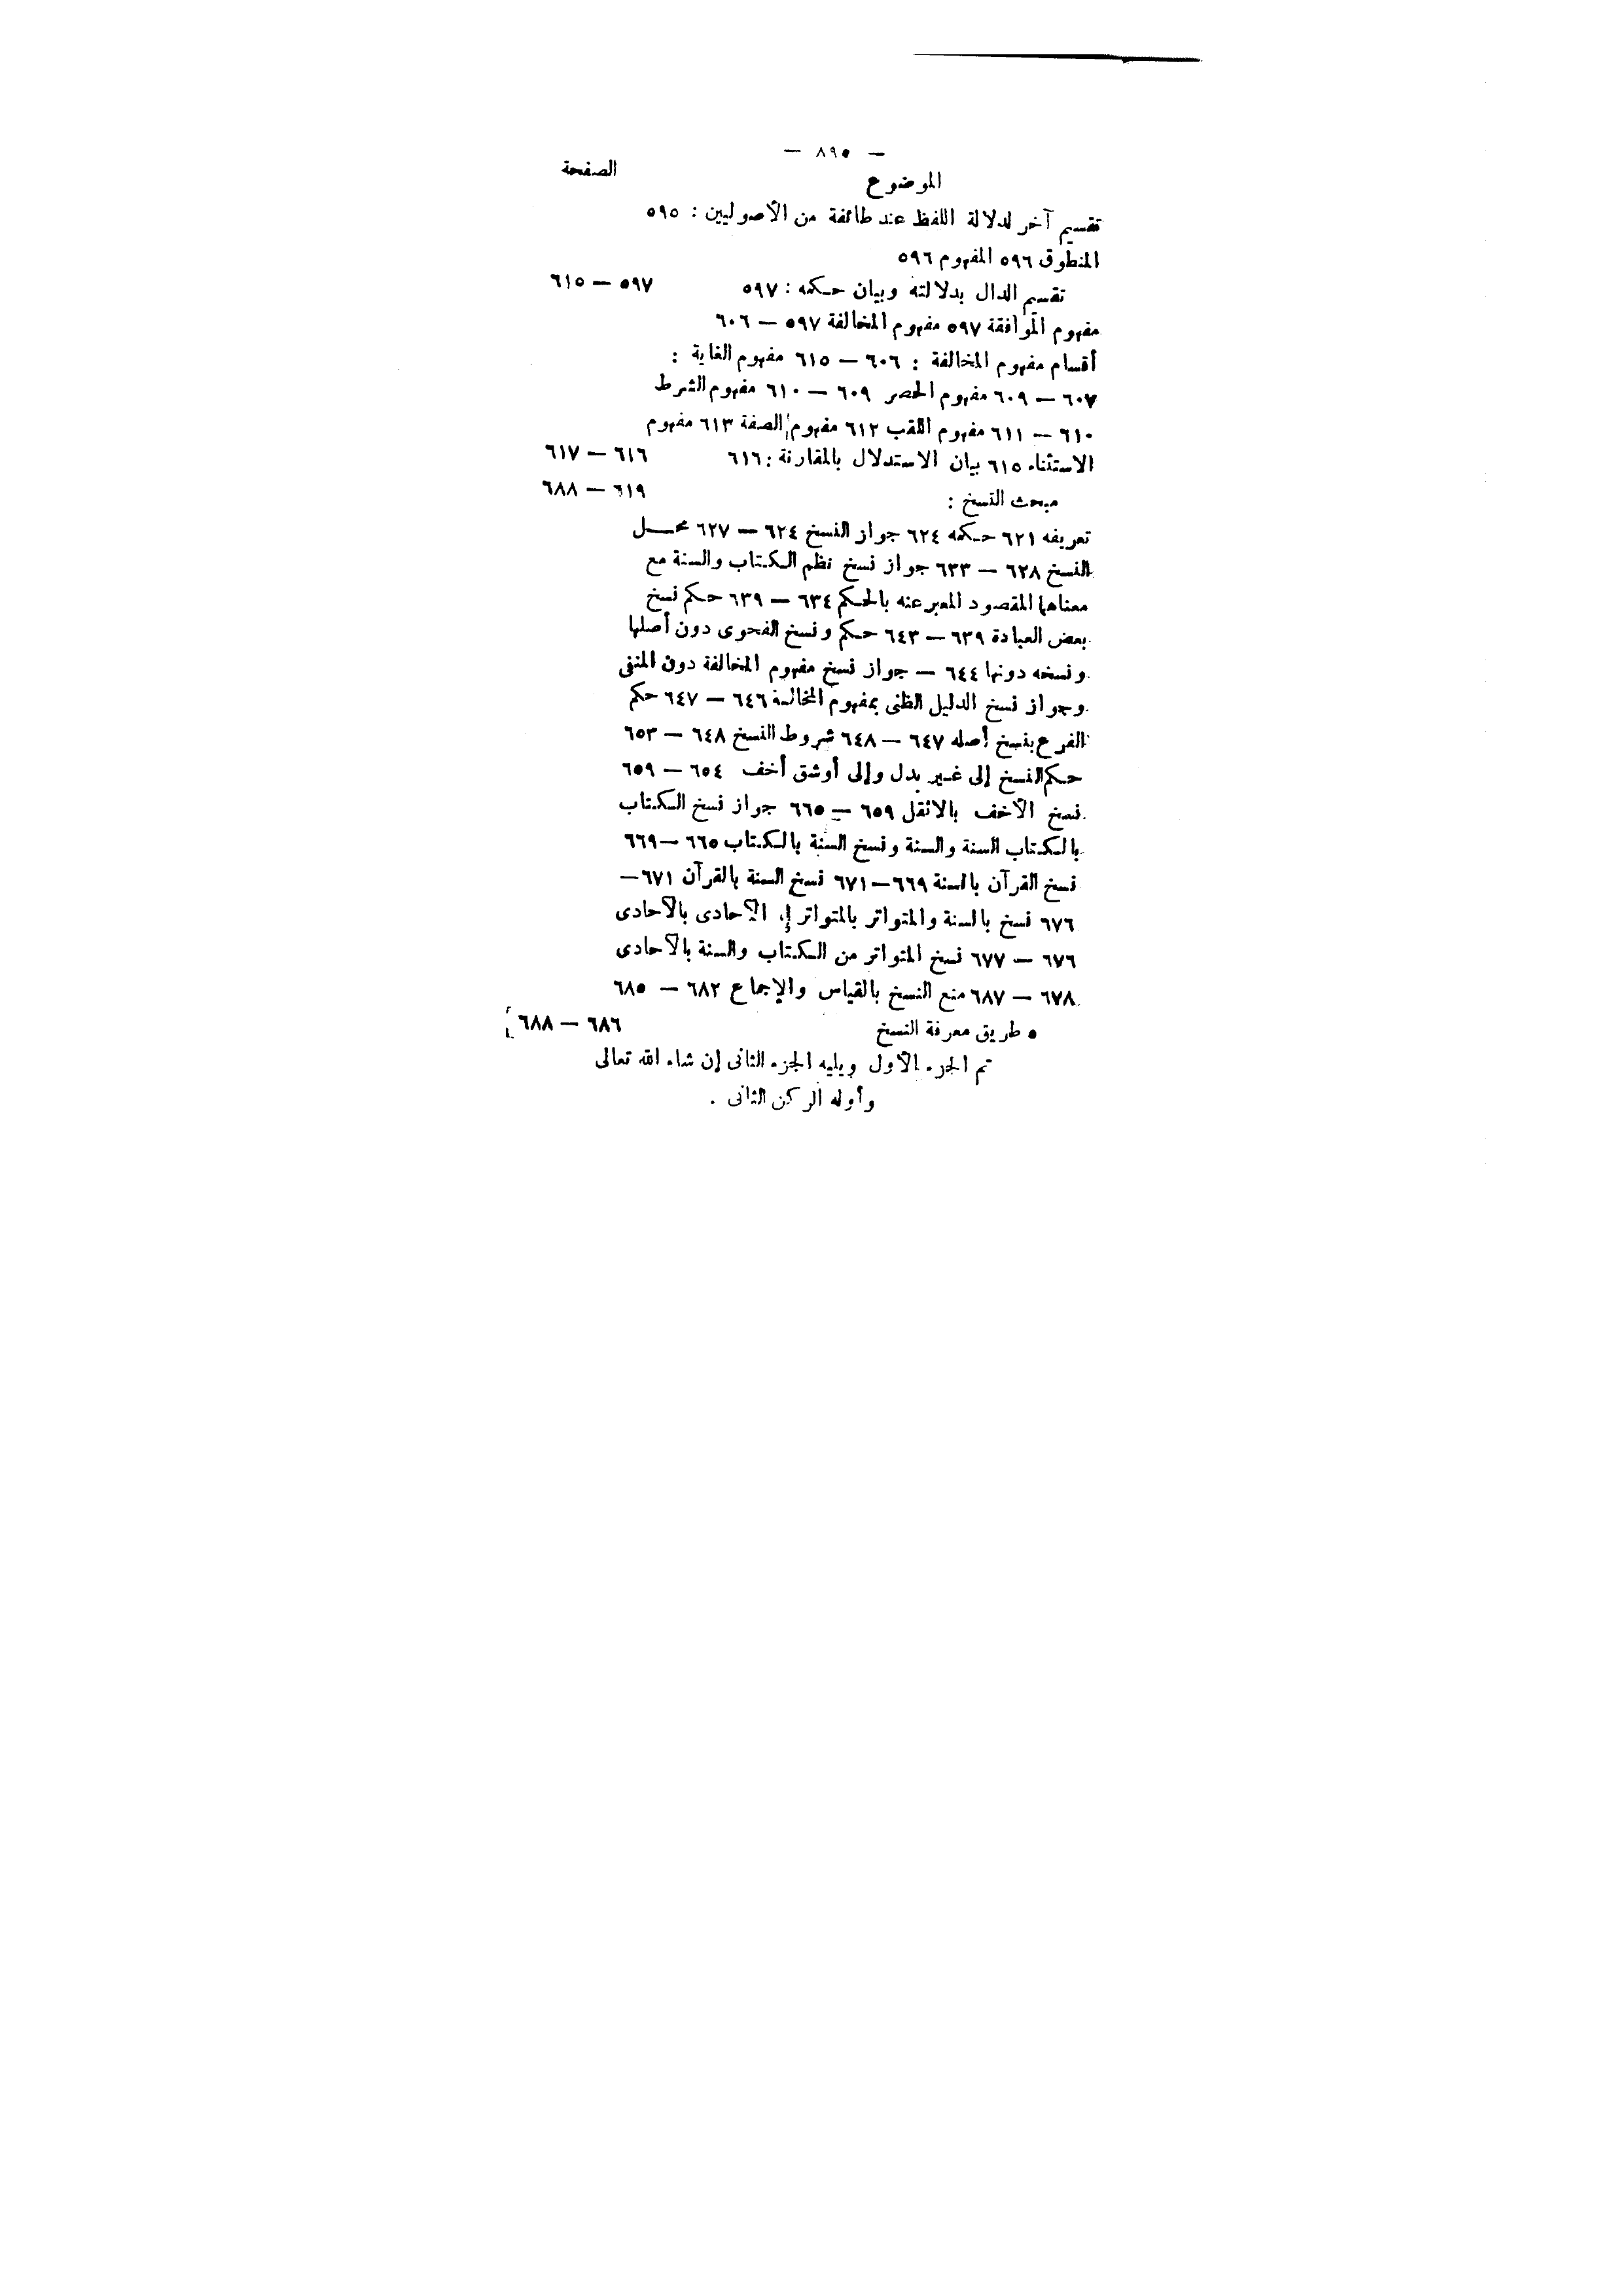 — ٨٩٥ —
الموضوع الصفحة
تقسيم آخر لدلالة اللفظ عند طائفة من الأصوليين : ٥٩٥
المنطوق ٥٩٦ المفهوم ٥٩٦
تقسيم الدال بدلالته وبيان حكمه : ٥٩٧ ٥٩٧ — ٦١٥
مفهوم الموافقة ٥٩٧ مفهوم المخالفة ٥٩٧ — ٦٠٦
أقسام مفهوم المخالفة : ٦٠٦ — ٦١٥ مفهوم الغاية :
٦٠٧ — ٦٠٩ مفهوم الحصر ٦٠٩ — ٦١٠ مفهوم الشرط
٦١٠ — ٦١١ مفهوم اللقب ٦١٢ مفهوم الصفة ٦١٣ مفهوم
الاستثناء ٦١٥ بيان الاستدلال بالمقارنة : ٦١٦ ٦١٦ — ٦١٧
مبحث النسخ : ٦١٩ — ٦٨٨
تعريفه ٦٢١ حكمه ٦٢٤ جواز النسخ ٦٢٤ — ٦٢٧ محل
النسخ ٦٢٨ — ٦٣٣ جواز نسخ نظم الكتاب والسنة مع
معناهما المقصود المعبر عنه بالحكم ٦٣٤ — ٦٣٩ حكم نسخ
بعض العبادة ٦٣٩ — ٦٤٣ حكم ونسخ الفحوى دون أصلها
ونسخه دونها ٦٤٤ — جواز نسخ مفهوم المخالفة دون المنفى
وجواز نسخ الدليل الظنى بمفهوم المخالفة ٦٤٦ — ٦٤٧ حكم
الفرع بنسخ أصله ٦٤٧ — ٦٤٨ شروط النسخ ٦٤٨ — ٦٥٣
حكم النسخ إلى غير بدل وإلى أوشق أخف ٦٥٤ — ٦٥٩
نسخ الأخف بالاثقل ٦٥٩ — ٦٦٥ جواز نسخ الكتاب
بالكتاب السنة والسنة ونسخ السنة بالكتاب ٦٦٥ — ٦٦٩
نسخ القرآن بالسنة ٦٦٩ — ٦٧١ نسخ السنة بالقرآن ٦٧١ —
٦٧٦ نسخ بالسنة والمتواتر بالمتواتر الآحادى بالآحادى
٦٧٦ — ٦٧٧ نسخ المتواتر من الكتاب والسنة بالآحادى
٦٧٨ — ٦٨٧ منع النسخ بالقياس والإجماع ٦٨٢ — ٦٨٥
• طريق معرفة النسخ ٦٨٦ — ٦٨٨
تم الجزء الأول ويليه الجزء الثانى إن شاء الله تعالى
وأوله الركن الثانى .